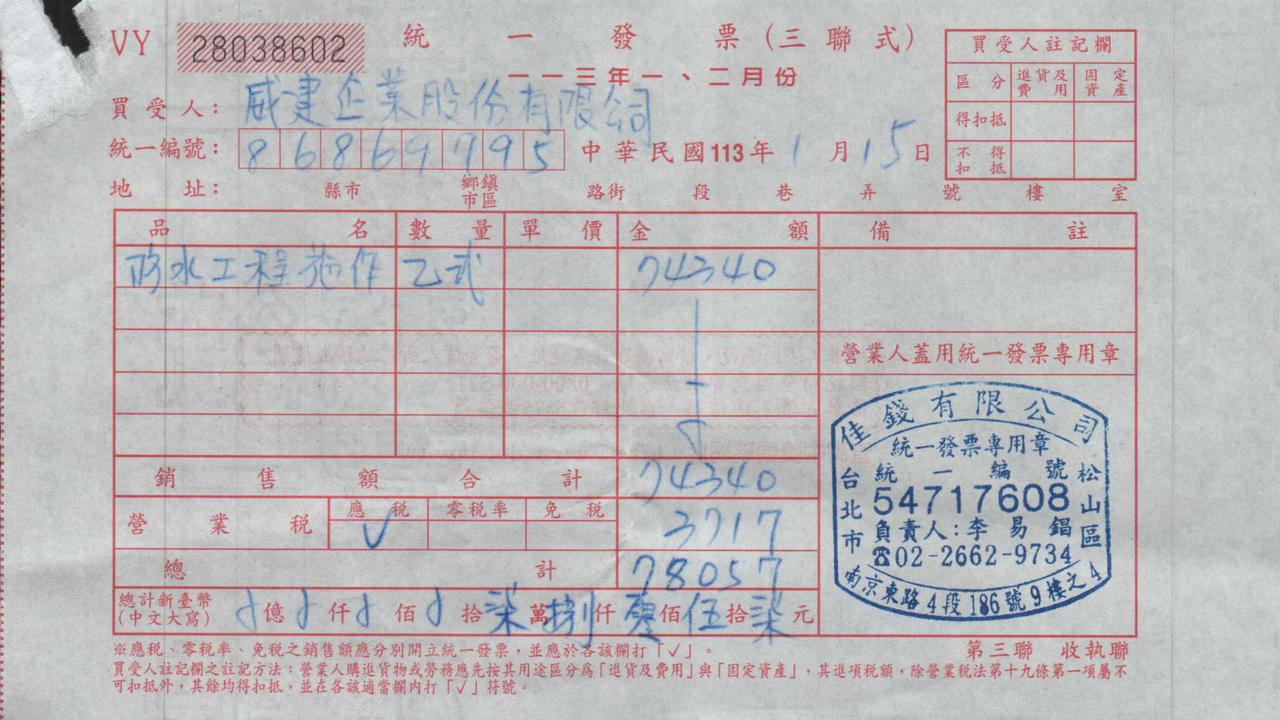 VY 28038602 統一發票(三聯式)
一一三年一、二月份
買受人: 威建企業股份有限公司
統一編號: 86869795 中華民國113年1月15日
地址: 縣市 鄉鎮市區 路街 段 巷 弄 號 樓 室
買受人註記欄
區分 進貨及費用 固定資產
得扣抵
不得扣抵
品名 數量 單價 金額 備註
防水工程施作 乙式 74340
營業人蓋用統一發票專用章
銷售額合計 74340
營業稅 應稅 零稅率 免稅 3717
√
總計 78057
總計新臺幣(中文大寫) 億 仟 佰 拾柒萬捌仟零佰伍拾柒元
佳錢有限公司
統一發票專用章
統一編號
54717608
負責人:李易錩
☎02-2662-9734
台北市 松山區
南京東路4段186號9樓之4
※應稅、零稅率、免稅之銷售額應分別開立統一發票,並應於各該欄打「√」。
第三聯 收執聯
買受人註記欄之註記方法:營業人購進貨物或勞務應先按其用途區分為「進貨及費用」與「固定資產」,其進項稅額,除營業稅法第十九條第一項屬不
可扣抵外,其餘均得扣抵,並在各該適當欄內打「√」符號。